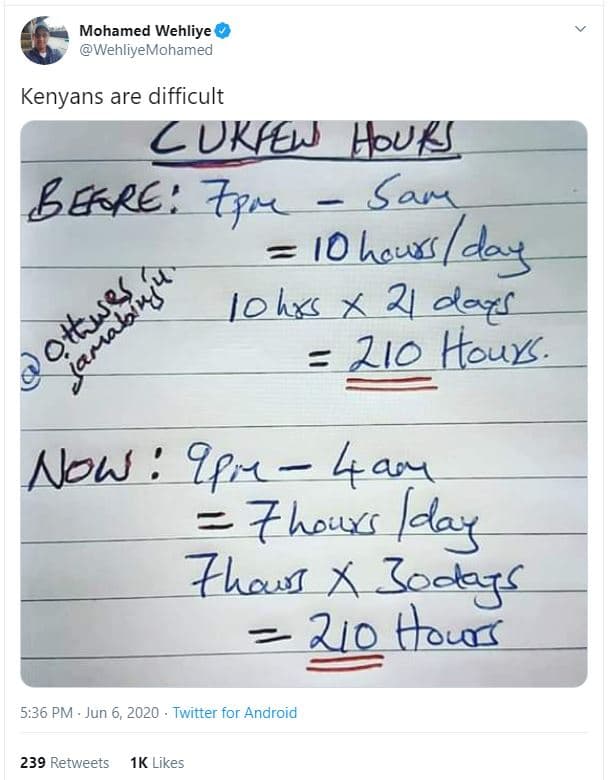 Mohamed Wehliye
@WehliyeMohamed
Kenyans are difficult
CURFEW HOURS
BEFORE: 7pm - 5am
= 10 hours/day
10 hrs x 21 days
= 210 Hours.
NOW: 9pm - 4am
= 7 hours/day
7hours x 30days
= 210 Hours
5:36 PM · Jun 6, 2020 · Twitter for Android
239 Retweets 1K Likes